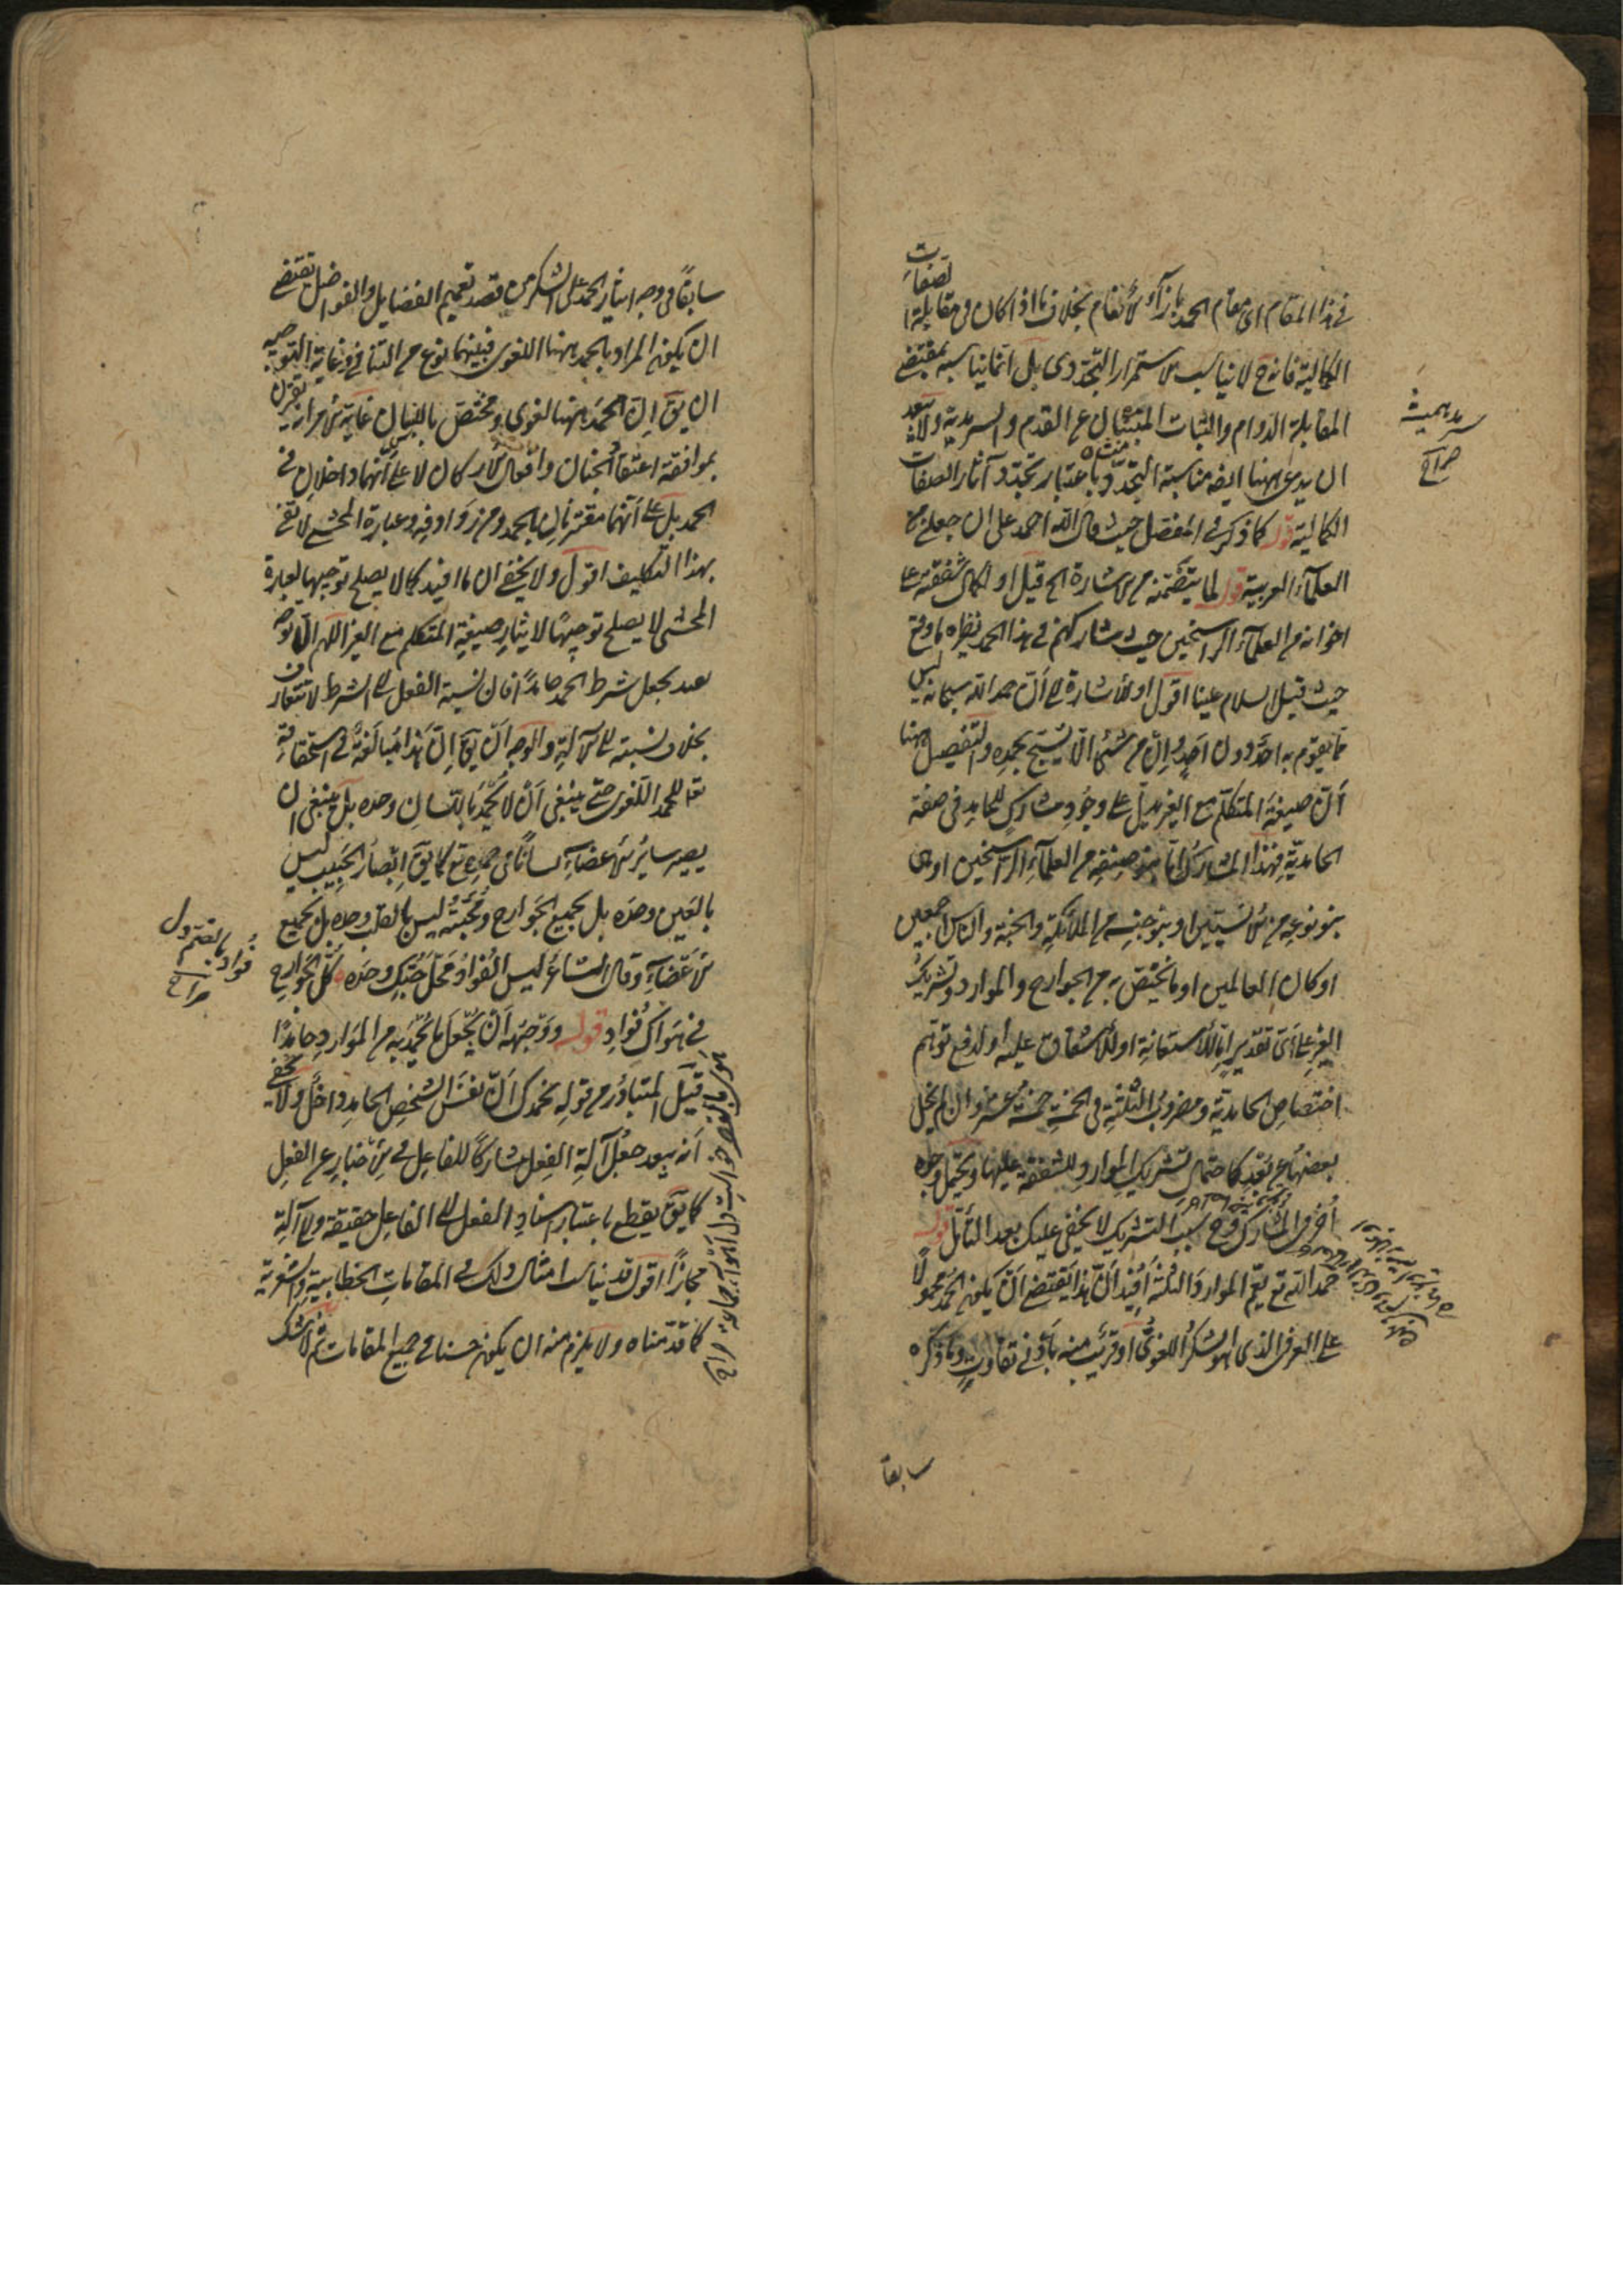 في هذا المقام اي مقام الحمد بازآء الانعام بخلاف ما اذا كان في مقابلة الصفات
الكمالية فانه ح لا يناسب الاستمرار التجددى بل انما يناسبه بمقتضى
المقابلة الدوام والثبات المنبئان عن القدم والسرمدية ولا يبعد
ان يدعى ههنا ايضا مناسبة التجدد باعتبار تجدد آثار الصفات
الكمالية قوله كما ذكر في المفصل حيث قال الله احمد على ان جعلني من
العلمآء العربية قوله لما يتضمنه من الاشارة الخ قيل او لكمال شفقته على
اخوانه من العلمآء الراسخين حيث شاركهم في هذا الحمد نظيره ما وقع
حيث قيل السلام علينا اقول او للاشارة الى أنّ حمد الله سبحانه ليس
مما يقوم به احد دون احد وان من شئ الا يسبح بحمده والتفصيل ههنا
أنّ صيغة المتكلم مع الغير يدل على وجود مشارك للحامد في صفة
الحامدية فهذا المشارك امّا بنو صنفه من العلمآء الراسخين او
بنو نوعه من الانسيين او بنو جنسه من الملائكة والجنة والناس اجمعين
او كان العالمين او ما يختص به من الجوارح والموارد وتشريك
الغير على اىّ تقدير امّا للاستعانة او للاشفاق عليه او لدفع توهم
اختصاص الحامدية ومضروب الثلثة في الخمسة خمسة عشر وان لم يخل
بعضها عن بعد كاحتمال تشريك الموارد للشفقة عليها ويحتمل وجوه
أخر في المشارك وفي سبب التشريك لا يخفى عليك بعد التأمل قوله
حمد الله تع يعم الموارد الثلثة أفيد أنّ هذا يقتضى أنّ يكون الحمد محمولا
على العرفى الذى هو الشكر اللغوى او قريب منه بأدنى تفاوت وما ذكره
سرمد هميشه
صراح
سابقا
سابقاً في وجه ايثار الحمد على الشكر من قصد تعميم الفضايل والفواضل يقتضى
ان يكون المراد بالحمد ههنا اللغوى فبينهما نوع من التنافى وغاية التوجيه
ان يق إنّ الحمد ههنا لغوى ومختص باللسان غاية الامر انه يقترن
بموافقة اعتقاد الجنان وافعال الاركان لا على أنهما داخلان في
الحمد بل على أنهما مقترنان بالحمد ومن زوادفه وعبارة المحشى لا تفى
بهذا التكليف اقول ولا يخفى ان ما افيد كما لا يصلح توجيها لعبارة
المحشى لا يصلح توجيهًا لايثار صيغة المتكلم مع الغير اللهم الّا بوجه
بعيد بجعل شرط الحمد حامدًا فان نسبة الفعل الى الشرط لا تتعارف
بخلاف نسبته الى الآلة والوجه أنّ يق إنّ هذا مبالغة في استحقاقه
تعا للحمد اللغوى حتى ينبغى أنّ لا يحمد باللسان وحده بل ينبغى ان
يصير ساير الاعضآء لسانًا في حمده تع كما يق ابصار الحبيب ليس
بالعين وحده بل بجميع الجوارح ومحبته ليس بالقلب وحده بل بجميع
الاعضآء وقال الشاعر ليس الفؤاد محل حبك وحده كل الجوارح
في هواك فؤاد قوله ووجهه أنّ يجعل ما يحمد به من الموارد حامدًا
قيل المتبادر من قوله نحمدك أنّ نفس الشخص الحامد داخل ولا يخفى
أنه يبعد جعل آلة الفعل مشاركًا للفاعل في الاخبار عن الفعل
كما يق يقطع باعتبار اسناد الفعل الى الفاعل حقيقة والى الآلة
مجازًا اقول قد يناسب امثال ذلك في المقامات الخطابية والشعرية
كما قدمناه ولا يلزم منه ان يكون حسنا في جميع المقامات ثم لا شك
فؤاد بالضم دل
صراح